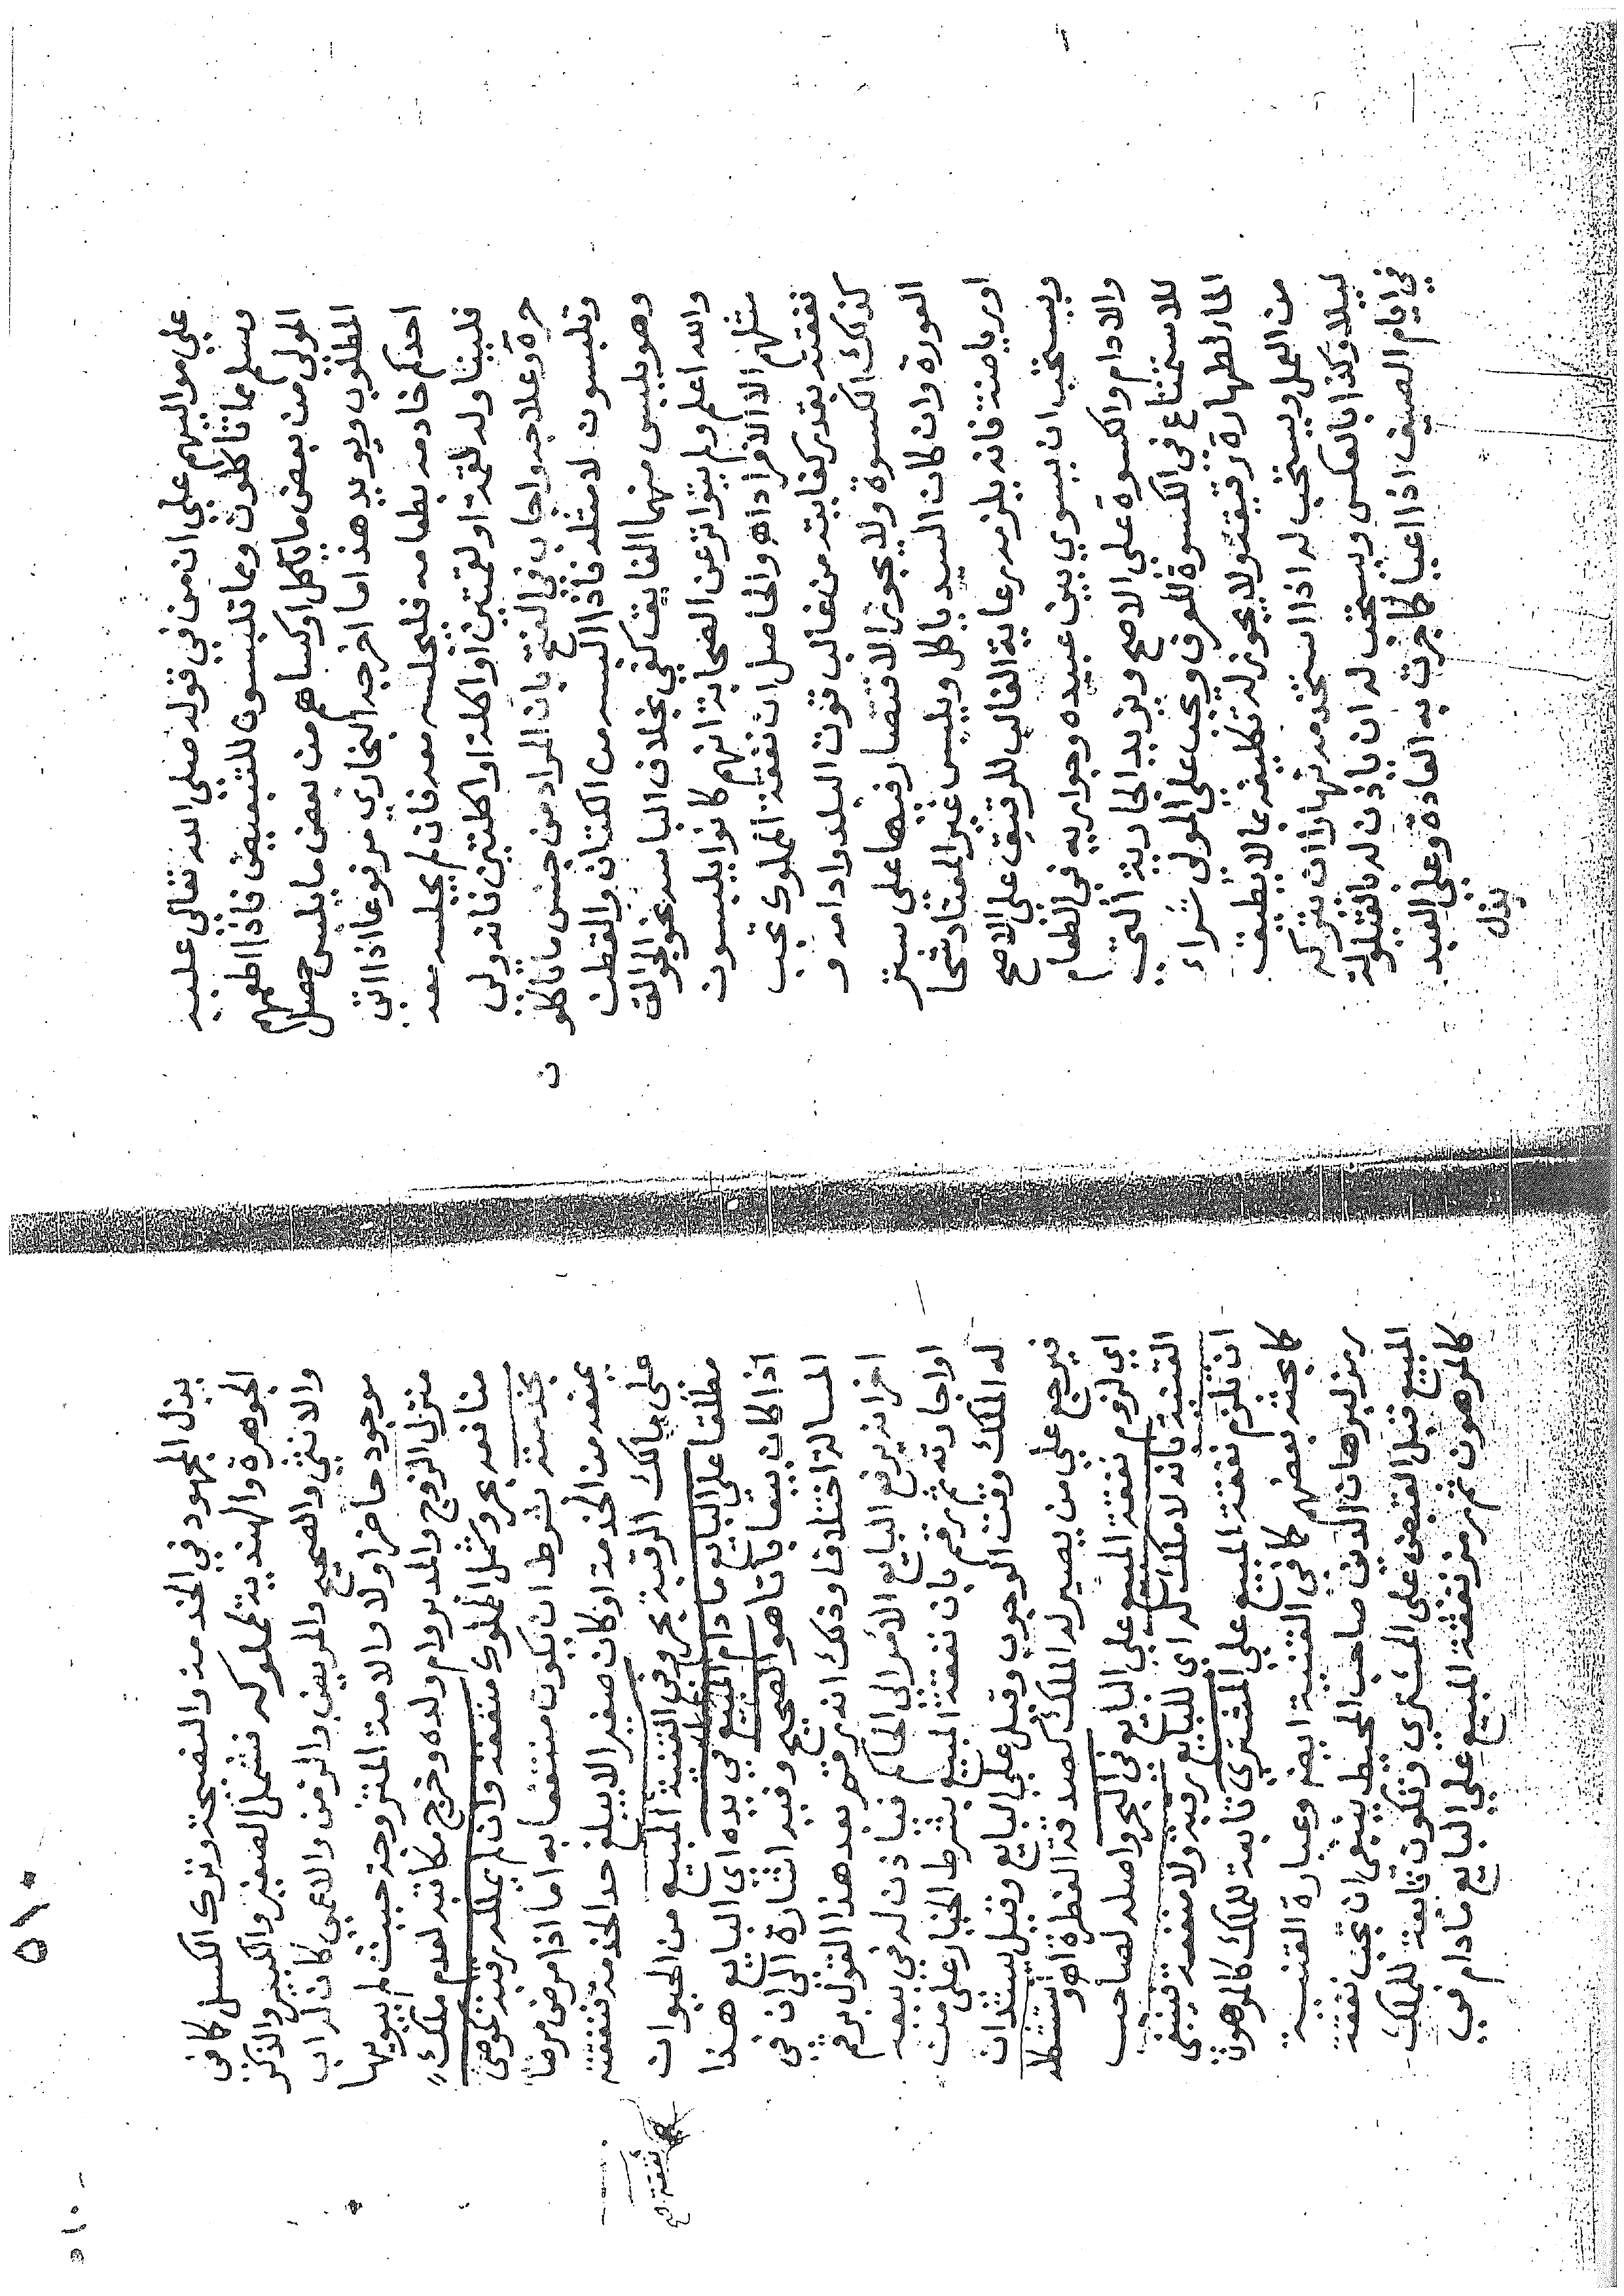 على مواليهم على ان من في قوله صلى الله تعالى عليه
وسلم مما تاكلون ومما تلبسون للتبعيض فاذا اطعمهم
المولى من بعض ما ياكل او كساهم من بعض ما يلبس حصل
المطلوب ويويد هذا ما اخرجه البخاري مرفوعا اذا اتى
احدكم خادمه بطعامه فليجلسه معه فان لم يجلسه معه
فليناوله لقمة او لقمتين او اكلة او اكلتين فانه ولي
حره وعلاجه واجاب في الفتح بان المراد من جنس ما تاكلو
ن
وتلبسون لا مثله فاذا البسه من الكتان والقطن
وهو يلبس منهما الفايق كفى بخلاف الباسه نحو الجوالق
والله اعلم ولم يتواتر عن الصحابة انهم كانوا يلبسون
مثلهم الا الافراد اه والحاصل ان نفقة المملوك تجب
نفقته بقدر كفايته من غالب قوت البلد وادامه و
كذلك الكسوة ولا يجوز الاقتصار فيها على ستر
العورة وان كان السيد ياكل ويلبس غير المعتاد شحا
او رياضة فانه يلزمه رعاية الغالب للرقيق على الاصح
ويستحب ان يسوي بين عبيده وجواريه في الطعام
والادام والكسوة على الاصح ويزيد الجارية التي
للاستمتاع في الكسوة للعرف ويجب على المولى شراء
الماء لطهارة رقيقه ولا يجوز له تكليفه بما لا يطيق
من العمل ويستحب له اذا استخدمه نهارا ان يتركه
ليلا وكذا بالعكس ويستحب له ان ياذن له بالقيلولة
في ايام الصيف اذا اعيا كما جرت به العادة وعلى العبد
بذل
٥١٠
بذل المجهود في الخدمة والنصيحة وترك الكسل كما في
الجوهرة والهندية لمملوكه فشمل الصغير والكبير والذكر
والانثى والصحيح والمريض والزمن والاعمى كان له اب
موجود حاضر او لا والامة المتزوجة حيث لم يبويها
منزل الزوج والمدبر وام ولده وخرج مكاتبه لعدم ملك
منافعه بحر وشمل المملوك منفعة وان لم يملك رقبة كموصى
بخدمته بشرط ان يكون منتفعا به اما اذا مرض مرضا
يمنعه من الخدمة او كان صغيرا لا يبلغ حد الخدمة فنفقته
على مالك الرقبة بحر وفي القنية المبيع من الحيوان
نفقة المبيع
مطلقا على البايع ما دام المبيع في يده اي البايع هذا
اذا كان بيعا باتا هو الصحيح وفيه اشارة الى ان في
المسالة اختلافا وذلك انه رقم بعد هذا القول برقم
اخر انه يرفع البايع الامر الى الحاكم فياذن له في بيعه
او اجارته ثم رقم بان نفقة المبيع بشرط الخيار على من
له الملك وقت الوجوب وقيل على البايع وقيل يستدان
فيرجع على من يصير له الملك كصدقة الفطر اهو واستشكله
اي لزوم نفقة المبيع على البايع في البحر واصله لصاحب
القنية بانه لا ملك له اي للبايع رقبة ولا منفعة فينبغي
ان تلزم نفقة المبيع على المشتري تابعة للملك كالمرهون
كما بحثه بعضهم كما في القنية ايضا وعبارة القنية
رمز لبرهان الدين صاحب المحيط ينبغي ان تجب نفقة
المبيع قبل القبض على المشتري وتكون تابعة للملك
كالمرهون ثم رمز نفقة المبيع على البايع ما دام في
٥١٠